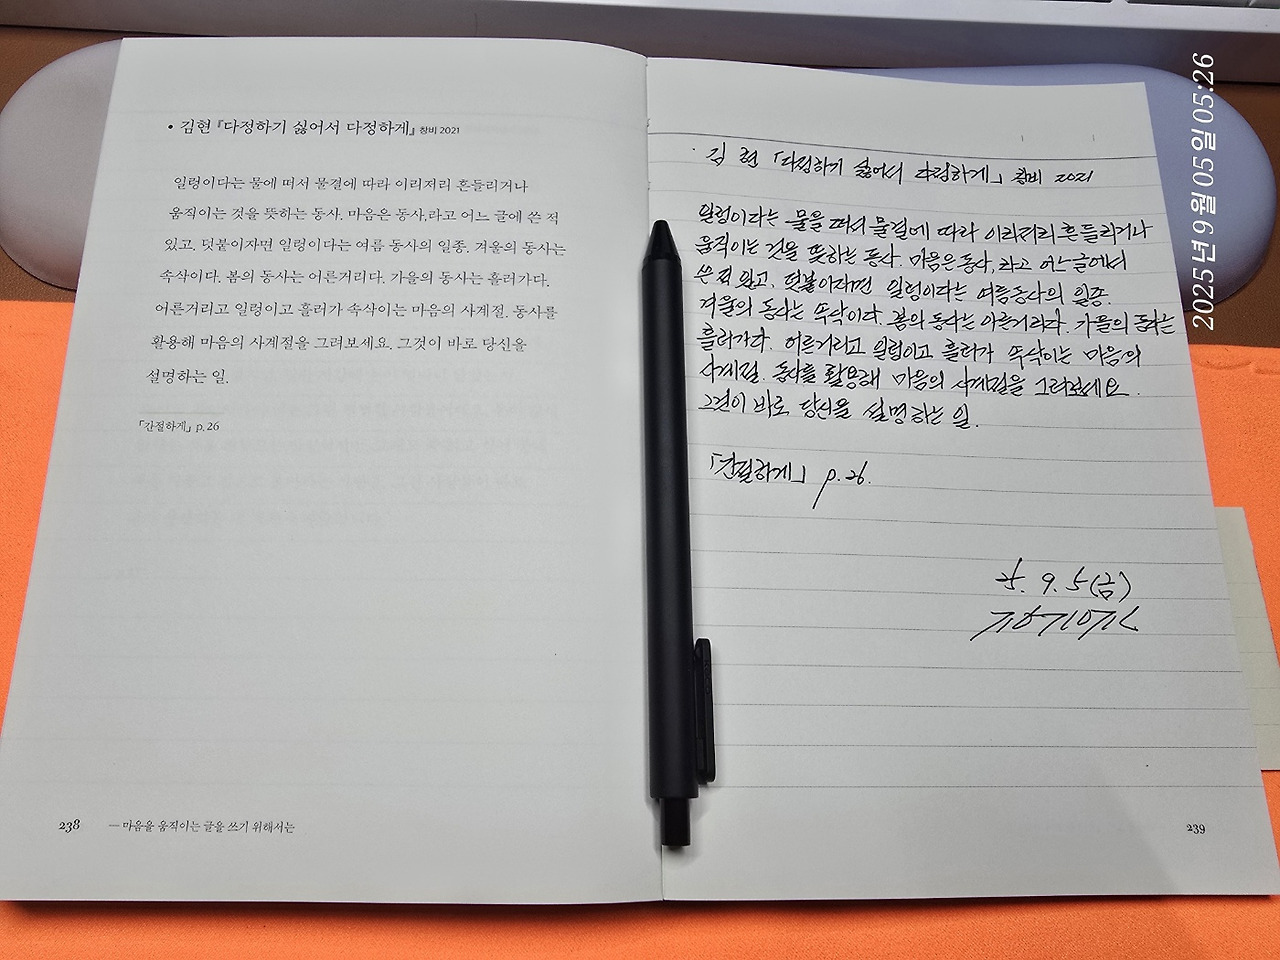 • 김현 『다정하기 싫어서 다정하게』 창비 2021
일렁이다는 물에 떠서 물결에 따라 이리저리 흔들리거나
움직이는 것을 뜻하는 동사. 마음은 동사,라고 어느 글에 쓴 적
있고, 덧붙이자면 일렁이다는 여름 동사의 일종. 겨울의 동사는
속삭이다. 봄의 동사는 어른거리다. 가을의 동사는 흘러가다.
어른거리고 일렁이고 흘러가 속삭이는 마음의 사계절. 동사를
활용해 마음의 사계절을 그려보세요. 그것이 바로 당신을
설명하는 일.
「간절하게」 p.26
238 — 마음을 움직이는 글을 쓰기 위해서는
· 김 현 「다정하기 싫어서 다정하게」 창비 2021
일렁이다는 물을 떠서 물결에 따라 이리저리 흔들리거나
움직이는 것을 뜻하는 동사. 마음은 동사,라고 어느 글에서
쓴 적 있고, 덧붙이자면 일렁이다는 여름동사의 일종.
겨울의 동사는 속삭이다. 봄의 동사는 어른거리다. 가을의 동사는
흘러가다. 어른거리고 일렁이고 흘러가 속삭이는 마음의
사계절. 동사를 활용해 마음의 사계절을 그려보세요.
그것이 바로 당신을 설명하는 일.
「간절하게」 p.26.
25. 9. 5(금)
239
2025년 9월 05일 05:26